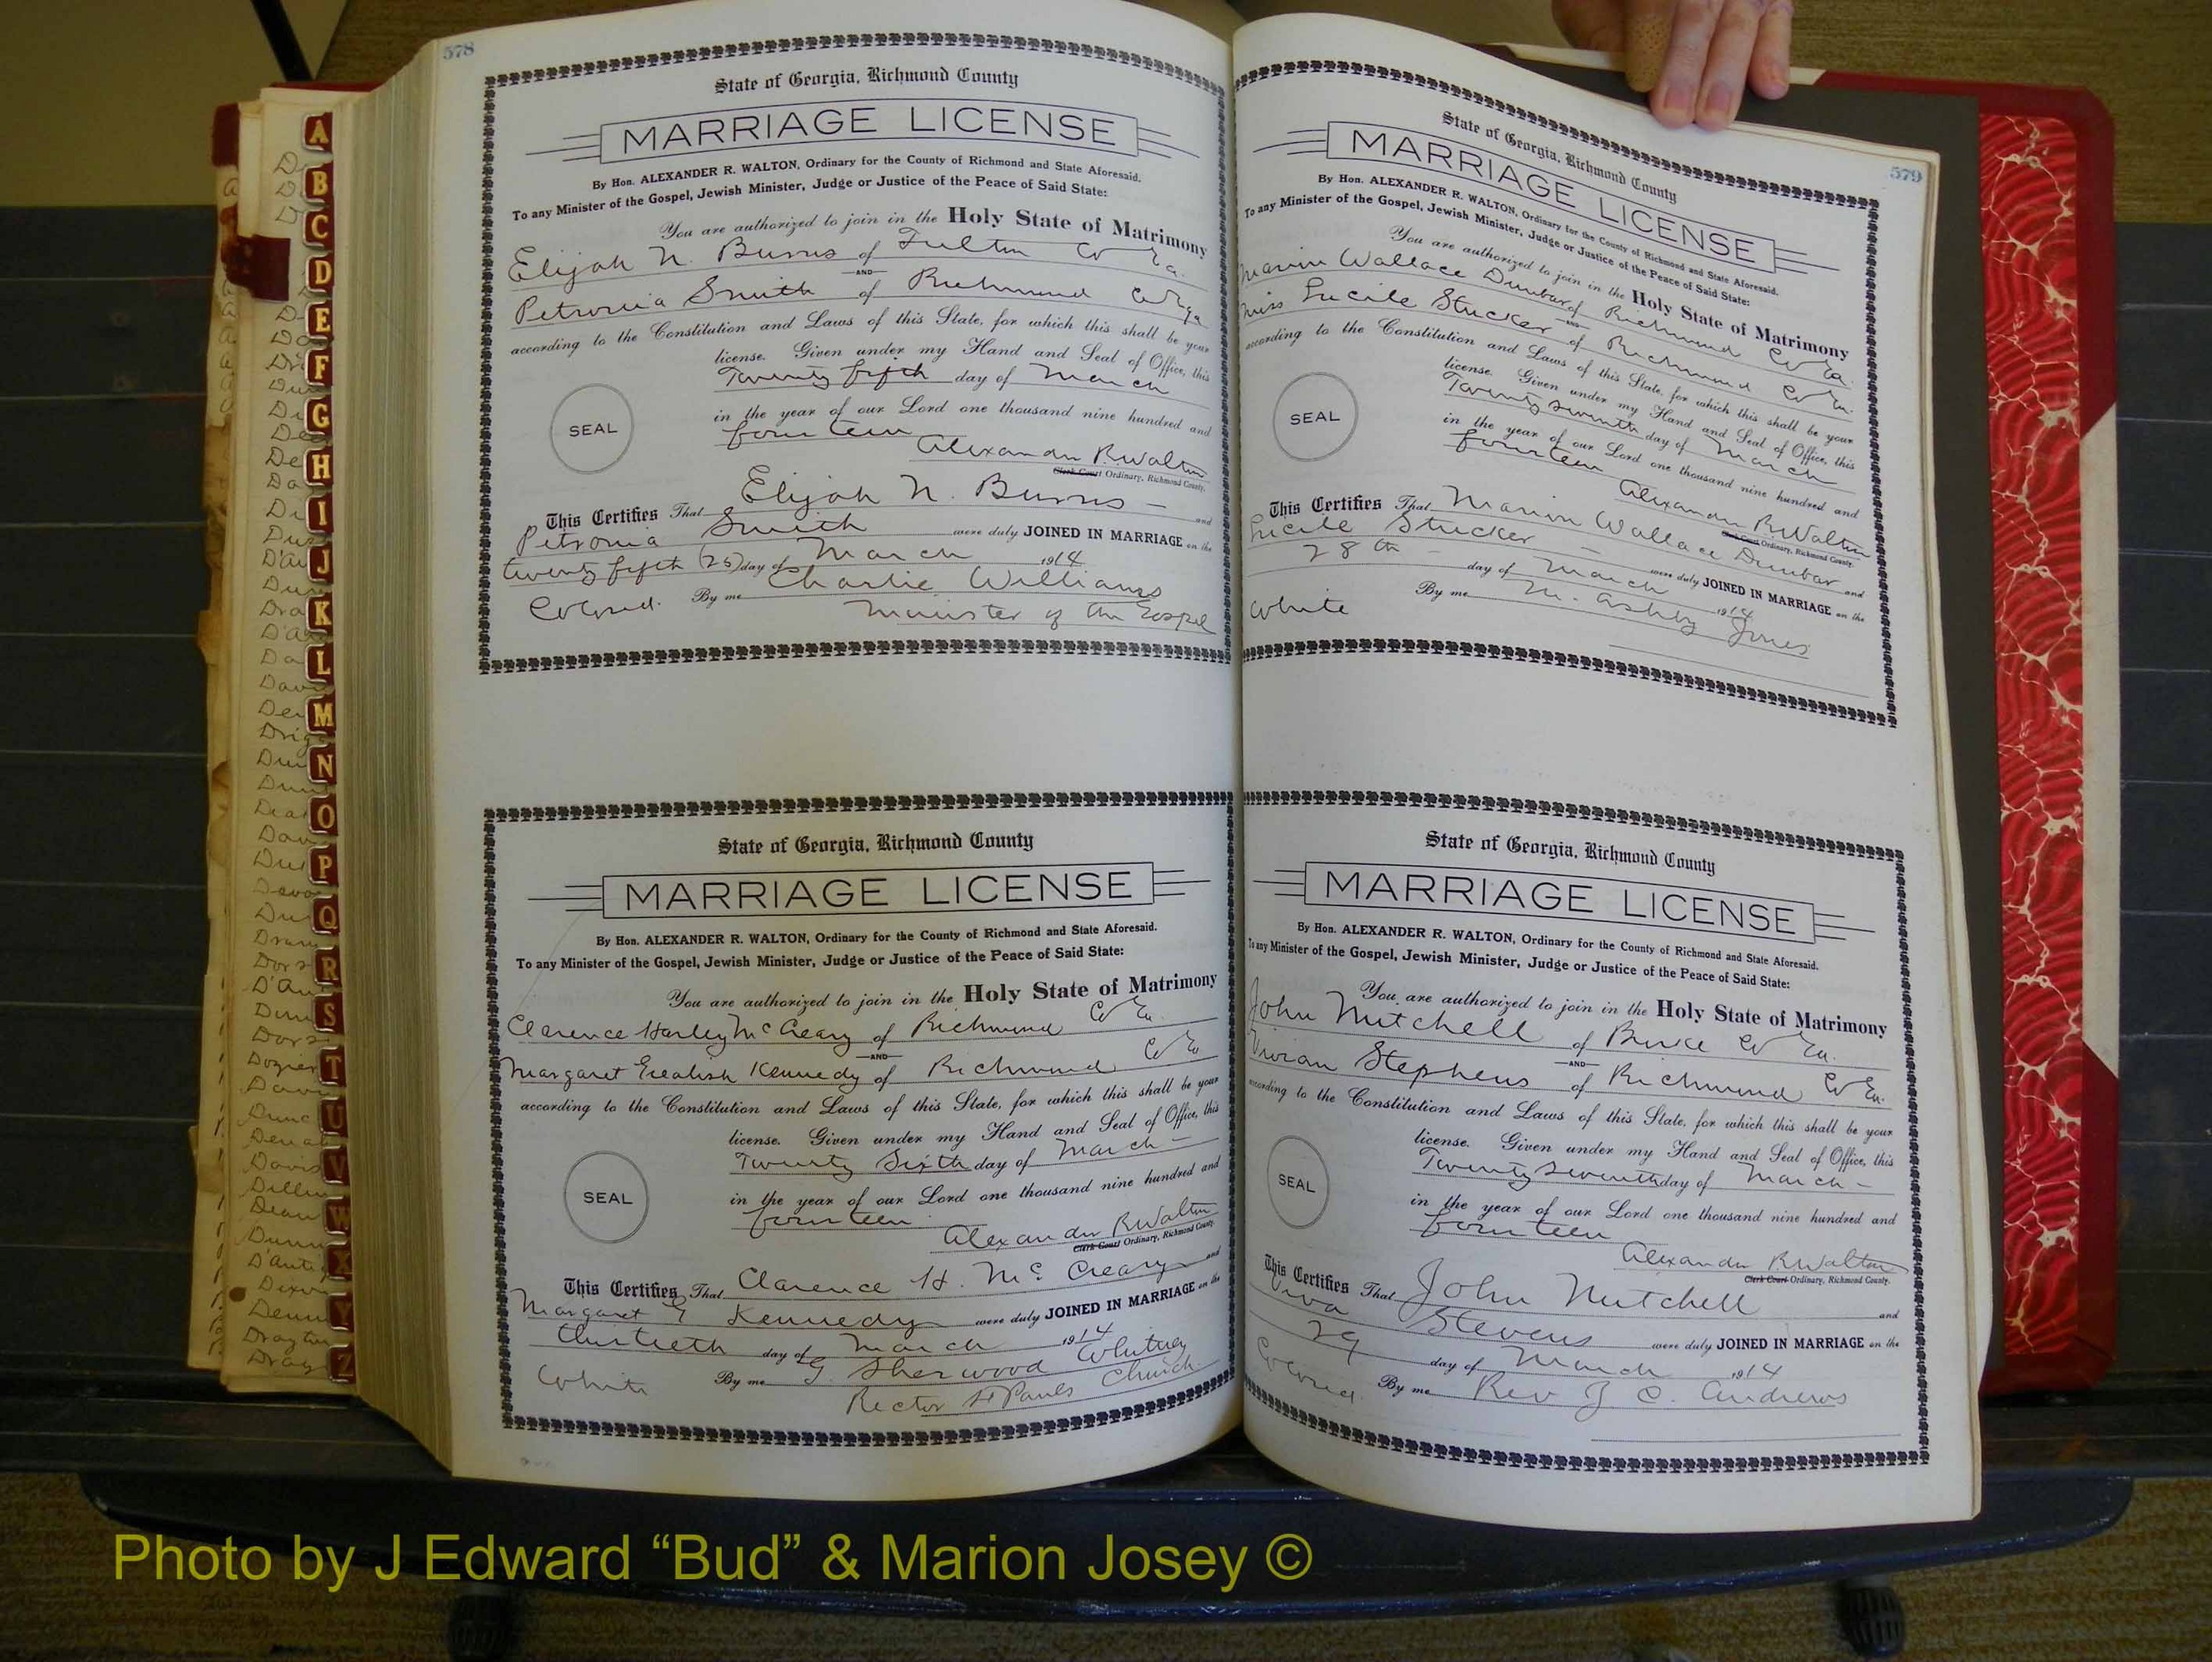 578
State of Georgia, Richmond County
MARRIAGE LICENSE
By Hon. ALEXANDER R. WALTON, Ordinary for the County of Richmond and State Aforesaid.
To any Minister of the Gospel, Jewish Minister, Judge or Justice of the Peace of Said State:
You are authorized to join in the Holy State of Matrimony
Elijah N. Burrus of Fulton Co Ga.
AND
Petronia Smith of Richmond Co Ga
according to the Constitution and Laws of this State, for which this shall be your
license. Given under my Hand and Seal of Office, this
Twenty fifth day of March
in the year of our Lord one thousand nine hundred and
fourteen
SEAL
Alexander R Walton
Clerk Court Ordinary, Richmond County.
This Certifies That Elijah N. Burrus and
Petronia Smith were duly JOINED IN MARRIAGE on the
twenty fifth (25) day of March 1914
Colored. By me Charlie Williams
Minister of the Gospel
State of Georgia, Richmond County
MARRIAGE LICENSE
By Hon. ALEXANDER R. WALTON, Ordinary for the County of Richmond and State Aforesaid.
To any Minister of the Gospel, Jewish Minister, Judge or Justice of the Peace of Said State:
You are authorized to join in the Holy State of Matrimony
Clarence Harley McCreary of Richmond Co Ga.
AND
Margaret Kennedy of Richmond Co Ga
according to the Constitution and Laws of this State, for which this shall be your
license. Given under my Hand and Seal of Office, this
Twenty Sixth day of March
in the year of our Lord one thousand nine hundred and
fourteen
SEAL
Alexander R Walton
Clerk Court Ordinary, Richmond County.
This Certifies That Clarence H. Mc Creary and
Margaret E Kennedy were duly JOINED IN MARRIAGE on the
thirtieth day of March 1914
White By me G. Sherwood Whitney
Rector St Pauls Church.
579
State of Georgia, Richmond County
MARRIAGE LICENSE
By Hon. ALEXANDER R. WALTON, Ordinary for the County of Richmond and State Aforesaid.
To any Minister of the Gospel, Jewish Minister, Judge or Justice of the Peace of Said State:
You are authorized to join in the Holy State of Matrimony
Marion Wallace Dunbar of Richmond Co Ga.
AND
Miss Lucile Stucker of Richmond Co Ga.
according to the Constitution and Laws of this State, for which this shall be your
license. Given under my Hand and Seal of Office, this
Twenty seventh day of March
in the year of our Lord one thousand nine hundred and
fourteen
SEAL
Alexander R Walton
Clerk Court Ordinary, Richmond County.
This Certifies That Marion Wallace Dunbar and
Lucile Stucker were duly JOINED IN MARRIAGE on the
28th day of March 1914
White By me M. Ashby Jones
State of Georgia, Richmond County
MARRIAGE LICENSE
By Hon. ALEXANDER R. WALTON, Ordinary for the County of Richmond and State Aforesaid.
To any Minister of the Gospel, Jewish Minister, Judge or Justice of the Peace of Said State:
You are authorized to join in the Holy State of Matrimony
John Mitchell of Burke Co Ga.
AND
Vivian Stephens of Richmond Co Ga.
according to the Constitution and Laws of this State, for which this shall be your
license. Given under my Hand and Seal of Office, this
Twenty seventh day of March
in the year of our Lord one thousand nine hundred and
fourteen
SEAL
Alexander R Walton
Clerk Court Ordinary, Richmond County.
This Certifies That John Mitchell and
Viva Stevens were duly JOINED IN MARRIAGE on the
29 day of March 1914
Colored. By me Rev J C. Andrews
A
B
C
D
E
F
G
H
I
J
K
L
M
N
O
P
Q
R
S
T
U
V
W
X
Y
Z
Photo by J Edward “Bud” & Marion Josey ©